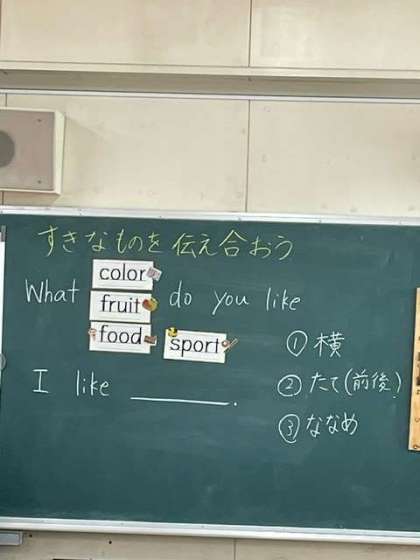 すきなものを伝え合おう
color
What fruit do you like
food sport
① 横
② たて(前後)
I like ______.
③ ななめ